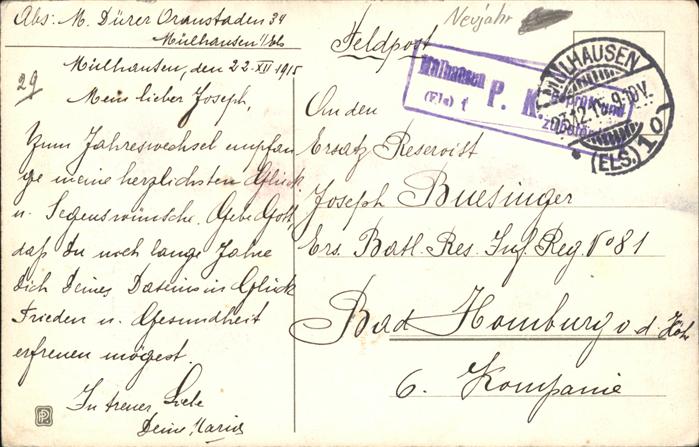 Abs: M. Dürer Oranstaden 34
Mülhausen i/Els
Mülhausen, den 22. XII 1915
29
Mein lieber Joseph,
Zum Jahreswechsel empfan-
ge meine herzlichsten Glück
u. Segenswünsche. Gebe Gott,
daß Du noch lange Jahre
Dich Deines Daseins in Glück
Frieden u. Gesundheit
erfreuen mögest.
In treuer Liebe
Deine Maria
Neujahr
Feldpost
Mülhausen
(Els) 1
P. K.
Geprüft und
MÜLHAUSEN
(ELS.) 10
An den
Ersatz Reservist
Joseph Buesinger
Ers. Batl. Res. Inf. Reg. No 81
Bad Homburg v. d. Höh
6. Kompanie